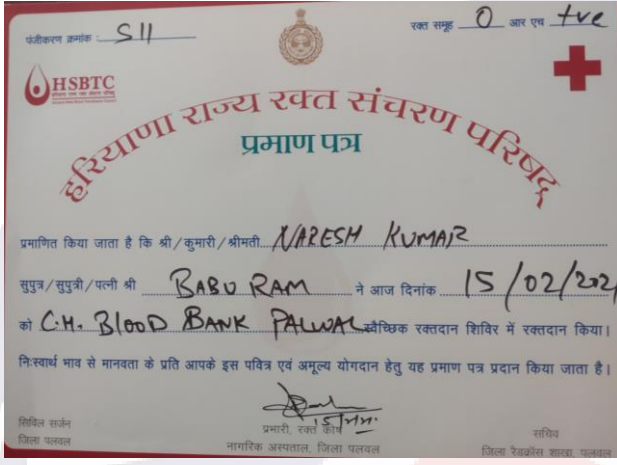 पंजीकरण क्रमांक : S11
रक्त समूह O आर एच +ve
HSBTC
हरियाणा राज्य रक्त संचरण परिषद्
प्रमाण पत्र
प्रमाणित किया जाता है कि श्री/कुमारी/श्रीमती NARESH KUMAR
सुपुत्र/सुपुत्री/पत्नी श्री BABU RAM ने आज दिनांक 15/02/202
को C.H. Blood BANK PALWAL स्वैच्छिक रक्तदान शिविर में रक्तदान किया।
निःस्वार्थ भाव से मानवता के प्रति आपके इस पवित्र एवं अमूल्य योगदान हेतु यह प्रमाण पत्र प्रदान किया जाता है।
सिविल सर्जन
जिला पलवल
प्रभारी, रक्त कोष
नागरिक अस्पताल, जिला पलवल
सचिव
जिला रैडक्रॉस शाखा, पलवल